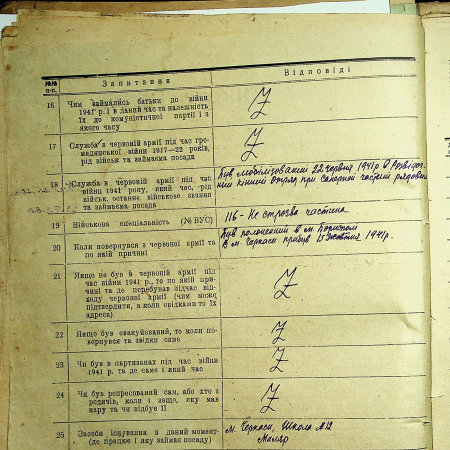 №№ п-п.
Запитання
Відповіді
16
Чим займались батьки до війни
1941 р. і в даний час та належність
їх до комуністичної партії і з
якого часу
Z
17
Служба в червоній армії під час гро-
мадянської війни 1917—22 років,
рід військ та займаєма посада
Z
18
Служба в червоній армії під час
війни 1941 року, який час, рід
військ, останнє військове звання
та займаєма посада
Був мобілізований 22 червня 1941 р. в Розвідоч-
ний кінний отряд при саперной частині рядовим
19
Військова спеціальність (№ ВУС)
116 - Не строєва частина
20
Коли повернувся з червоної армії та
по якій причині
Був полонений в м.
В м. Черкаси прибув 15 жовтня 1941 р.
21
Якщо не був в червоній армії під
час війни 1941 р., то по якій при-
чині та де перебував підчас від-
ходу червоної армії (чим може
підтвердити, а коли свідками то їх
адреса)
Z
22
Якщо був евакуйований, то коли по-
вернувся та звідки саме
Z
23
Чи був в партизанах під час війни
1941 р. та де саме і який час
Z
24
Чи був репресований сам, або хто з
родичів, коли і защо, яку мав
кару та чи відбув її
Z
25
Засоби існування в даний момент
(де працює і яку займає посаду)
м. Черкаси, Школа №12
Маляр